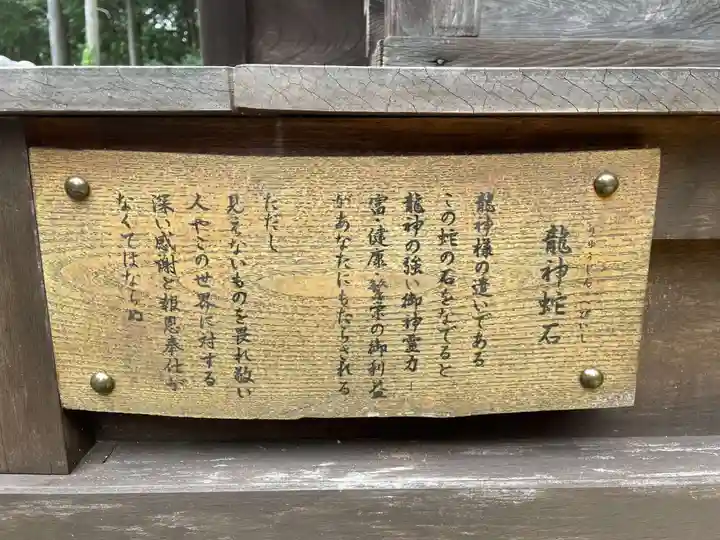 龍神蛇石
龍神様の遣いである
この蛇の石をなでると
龍神の強い御神霊力
富・健康・繁栄の御利益
があなたにもたらされる
ただし
見えないものを畏れ敬い
人やこの世界に対する
深い感謝と報恩奉仕が
なくてはならぬ